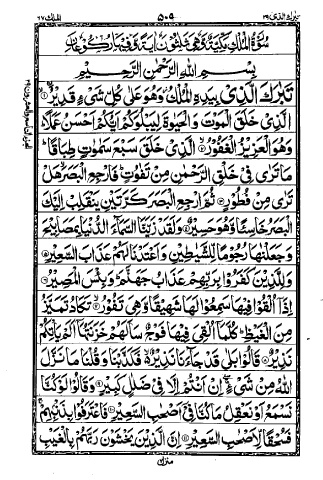 تبٰرك الذی ۲۹ ۵۰۵ الملك ۶۷
سُوْرَةُ الْمُلْكِ مَكِّيَّةٌ وَّهِيَ ثَلٰثُوْنَ اٰيَةً وَّفِيْهَا رُكُوْعَانِ
بِسْمِ اللّٰهِ الرَّحْمٰنِ الرَّحِيْمِ
تَبٰرَكَ الَّذِيْ بِيَدِهِ الْمُلْكُ وَهُوَ عَلٰى كُلِّ شَيْءٍ قَدِيْرُ ۙ﴿۱﴾
الَّذِيْ خَلَقَ الْمَوْتَ وَالْحَيٰوةَ لِيَبْلُوَكُمْ اَيُّكُمْ اَحْسَنُ عَمَلًا ؕ
وَهُوَ الْعَزِيْزُ الْغَفُوْرُ ﴿۲﴾ الَّذِيْ خَلَقَ سَبْعَ سَمٰوٰتٍ طِبَاقًا ؕ
مَا تَرٰى فِيْ خَلْقِ الرَّحْمٰنِ مِنْ تَفٰوُتٍ ؕ فَارْجِعِ الْبَصَرَ هَلْ
تَرٰى مِنْ فُطُوْرٍ ﴿۳﴾ ثُمَّ ارْجِعِ الْبَصَرَ كَرَّتَيْنِ يَنْقَلِبْ اِلَيْكَ
الْبَصَرُ خَاسِئًا وَّهُوَ حَسِيْرٌ ﴿۴﴾ وَلَقَدْ زَيَّنَّا السَّمَآءَ الدُّنْيَا بِمَصَابِيْحَ
وَجَعَلْنٰهَا رُجُوْمًا لِّلشَّيٰطِيْنِ وَاَعْتَدْنَا لَهُمْ عَذَابَ السَّعِيْرِ ﴿۵﴾
وَلِلَّذِيْنَ كَفَرُوْا بِرَبِّهِمْ عَذَابُ جَهَنَّمَ ؕ وَبِئْسَ الْمَصِيْرُ ﴿۶﴾
اِذَآ اُلْقُوْا فِيْهَا سَمِعُوْا لَهَا شَهِيْقًا وَّهِيَ تَفُوْرُ ﴿۷﴾ تَكَادُ تَمَيَّزُ
مِنَ الْغَيْظِ ؕ كُلَّمَآ اُلْقِيَ فِيْهَا فَوْجٌ سَاَلَهُمْ خَزَنَتُهَآ اَلَمْ يَاْتِكُمْ
نَذِيْرٌ ﴿۸﴾ قَالُوْا بَلٰى قَدْ جَآءَنَا نَذِيْرٌ ۙ فَكَذَّبْنَا وَقُلْنَا مَا نَزَّلَ
اللّٰهُ مِنْ شَيْءٍ ۚ اِنْ اَنْتُمْ اِلَّا فِيْ ضَلٰلٍ كَبِيْرٍ ﴿۹﴾ وَقَالُوْا لَوْ كُنَّا
نَسْمَعُ اَوْ نَعْقِلُ مَا كُنَّا فِيْٓ اَصْحٰبِ السَّعِيْرِ ﴿۱۰﴾ فَاعْتَرَفُوْا بِذَنْۢبِهِمْ ۚ
فَسُحْقًا لِّاَصْحٰبِ السَّعِيْرِ ﴿۱۱﴾ اِنَّ الَّذِيْنَ يَخْشَوْنَ رَبَّهُمْ بِالْغَيْبِ
منزل